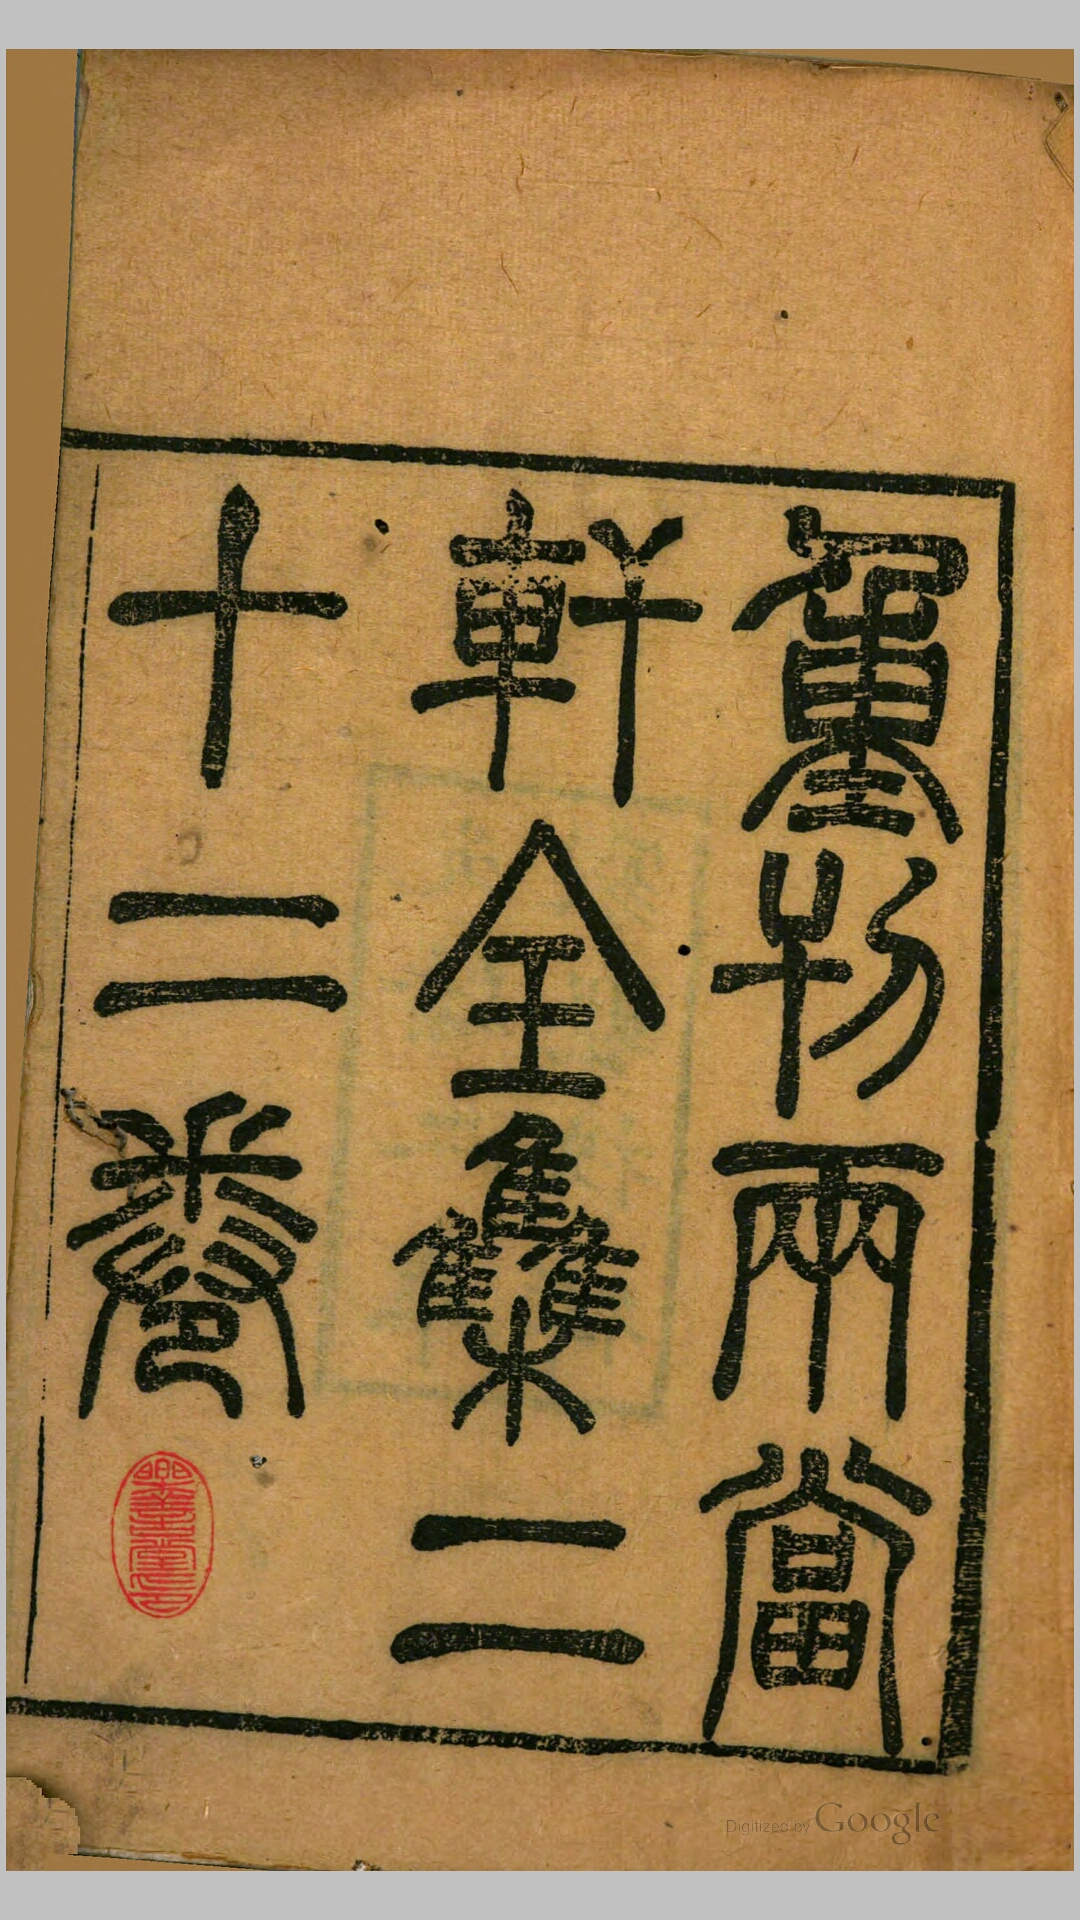 重刊兩當
軒全集二
十二卷
Digitized by Google